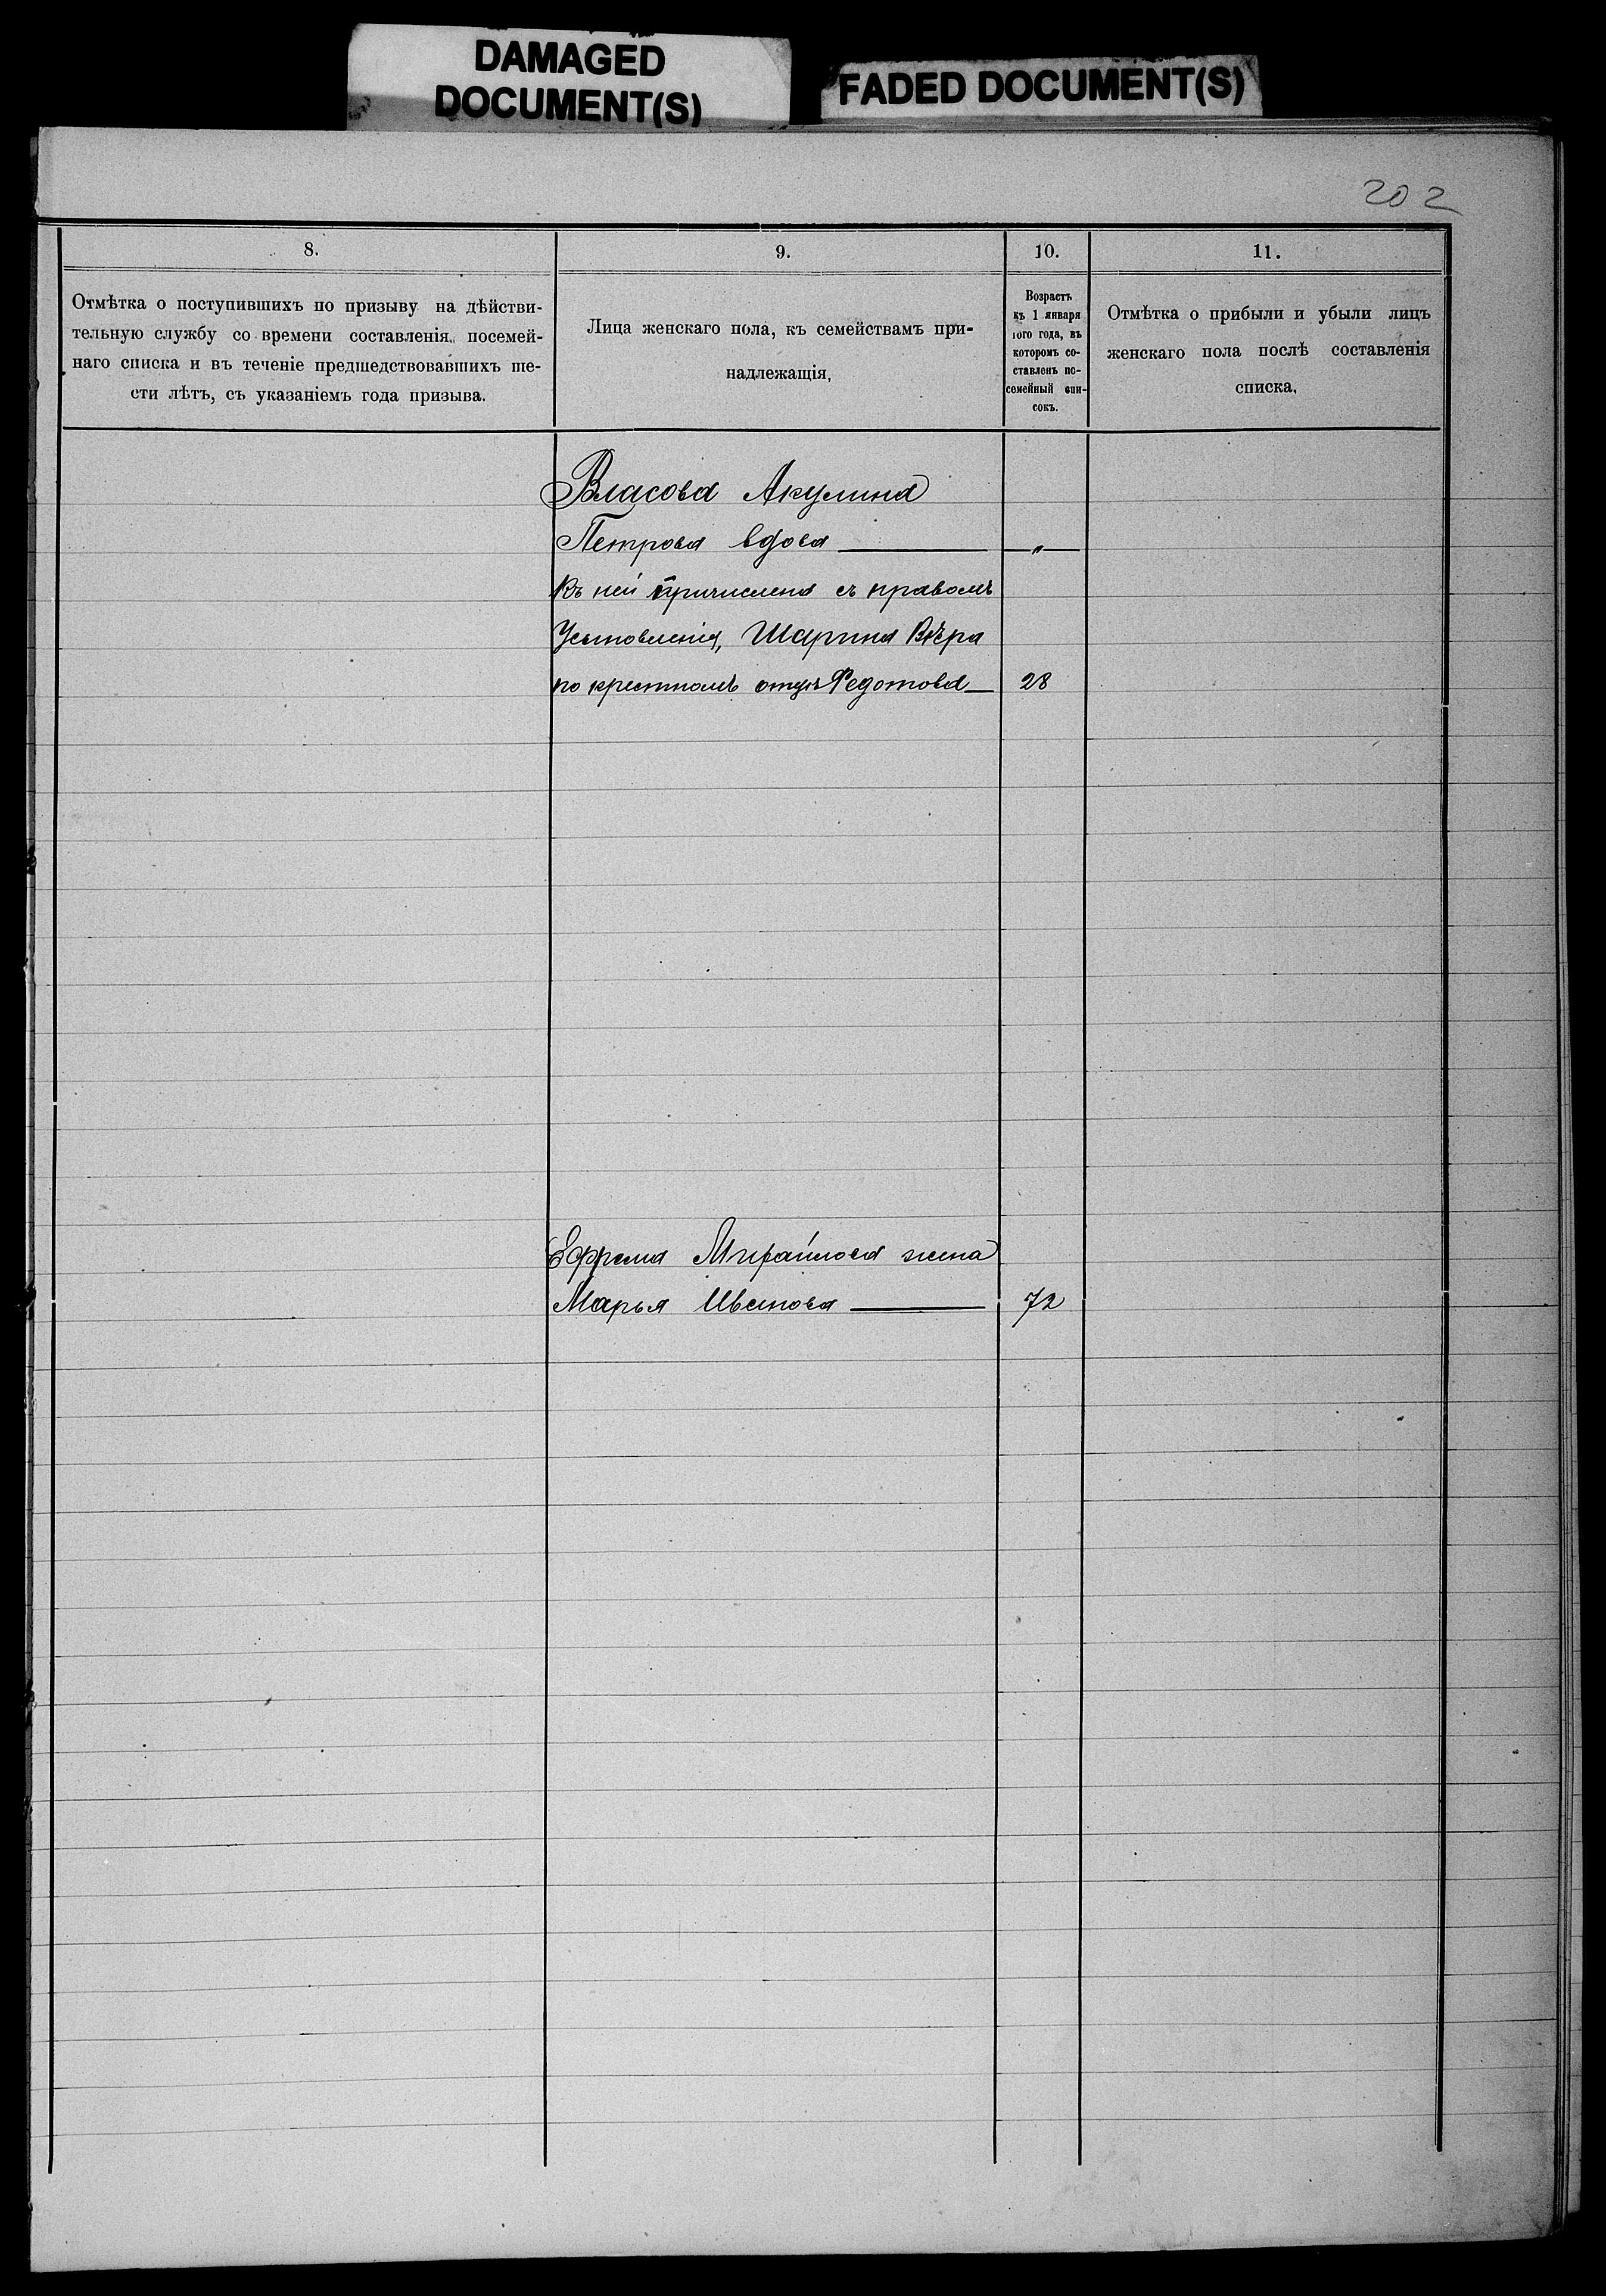 DAMAGED
DOCUMENT(S)
FADED DOCUMENT(S)
202
8.
Отмѣтка о поступившихъ по призыву на дѣйстви-
тельную службу со времени составленія посемей-
наго списка и въ теченіе предшедствовавшихъ ше-
сти лѣтъ, съ указаніемъ года призыва.
9.
Лица женскаго пола, къ семействамъ при-
надлежащія,
10.
Возрастъ
къ 1 января
того года, въ
которомъ со-
ставленъ по-
семейный спи-
сокъ.
11.
Отмѣтка о прибыли и убыли лицъ
женскаго пола послѣ составленія
списка.
Власова Акулина
Петрова вдова — „ —
Къ ней причислена съ правомъ
Усыновленія, Шарина Вѣра
по крестномъ отцѣ Федотова — 28
Ефрема Михайлова жена
Марья Иванова — 72